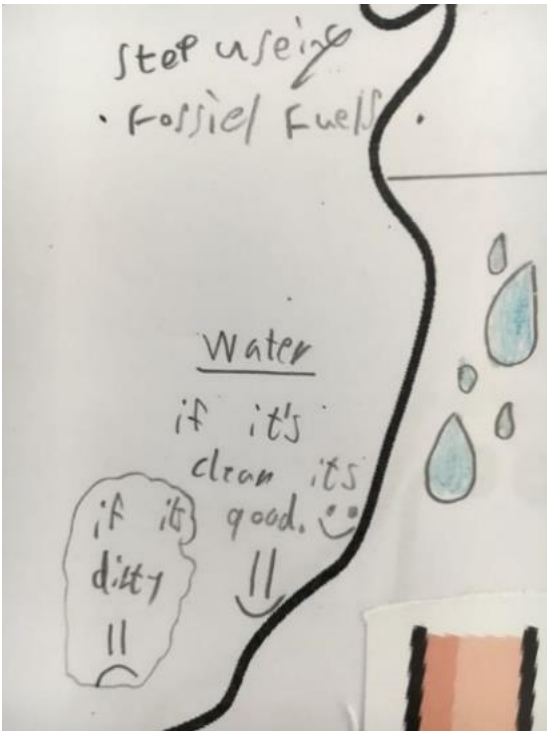 Stop useing
• Fossiel Fuells •
Water
if it's
clean its
good.
if its
dirty